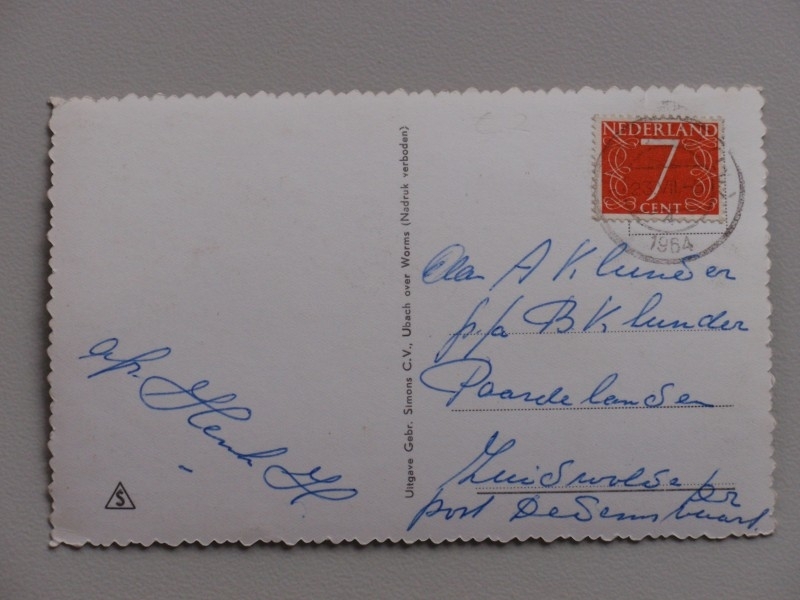 NEDERLAND
7
CENT
1964
Aan A Klunder
p/a B Klunder
Paardelanden
Zuidwolde Dr
post
afz. Henk H
Uitgave Gebr. Simons C.V., Ubach over Worms (Nadruk verboden)
S